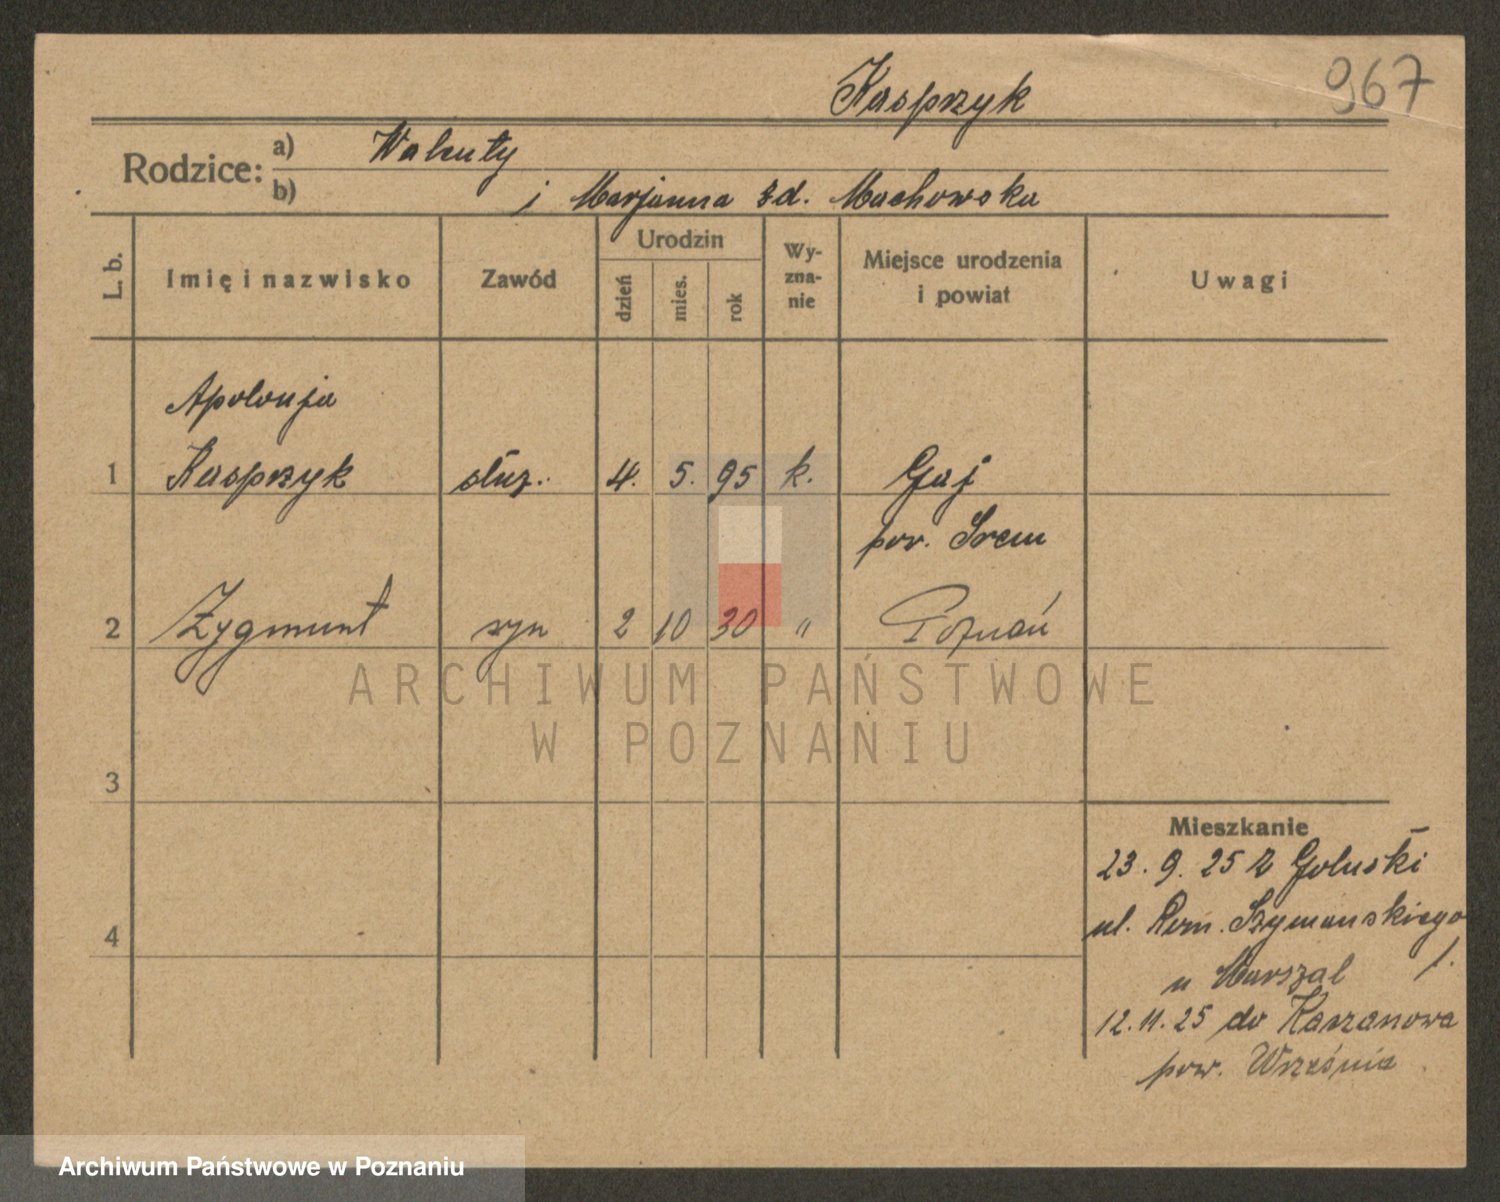 Kasprzyk
967
Rodzice: a) Walenty
b) i Marjanna zd. Machowska
L. b.
Imię i nazwisko
Zawód
Urodzin
dzień
mies.
rok
Wy-
zna-
nie
Miejsce urodzenia
i powiat
Uwagi
Apolonja
1 Kasprzyk służ. 4. 5. 95 k. Gaj
pow. Śrem
2 Zygmunt syn 2 10 30 " Poznań
3
4
Mieszkanie
23. 9. 25 z Goluski
ul. Rom. Szymańskiego
u Marszal 1.
12. 11. 25 do Kaczanowa
pow. Września
ARCHIWUM PAŃSTWOWE
W POZNANIU
Archiwum Państwowe w Poznaniu